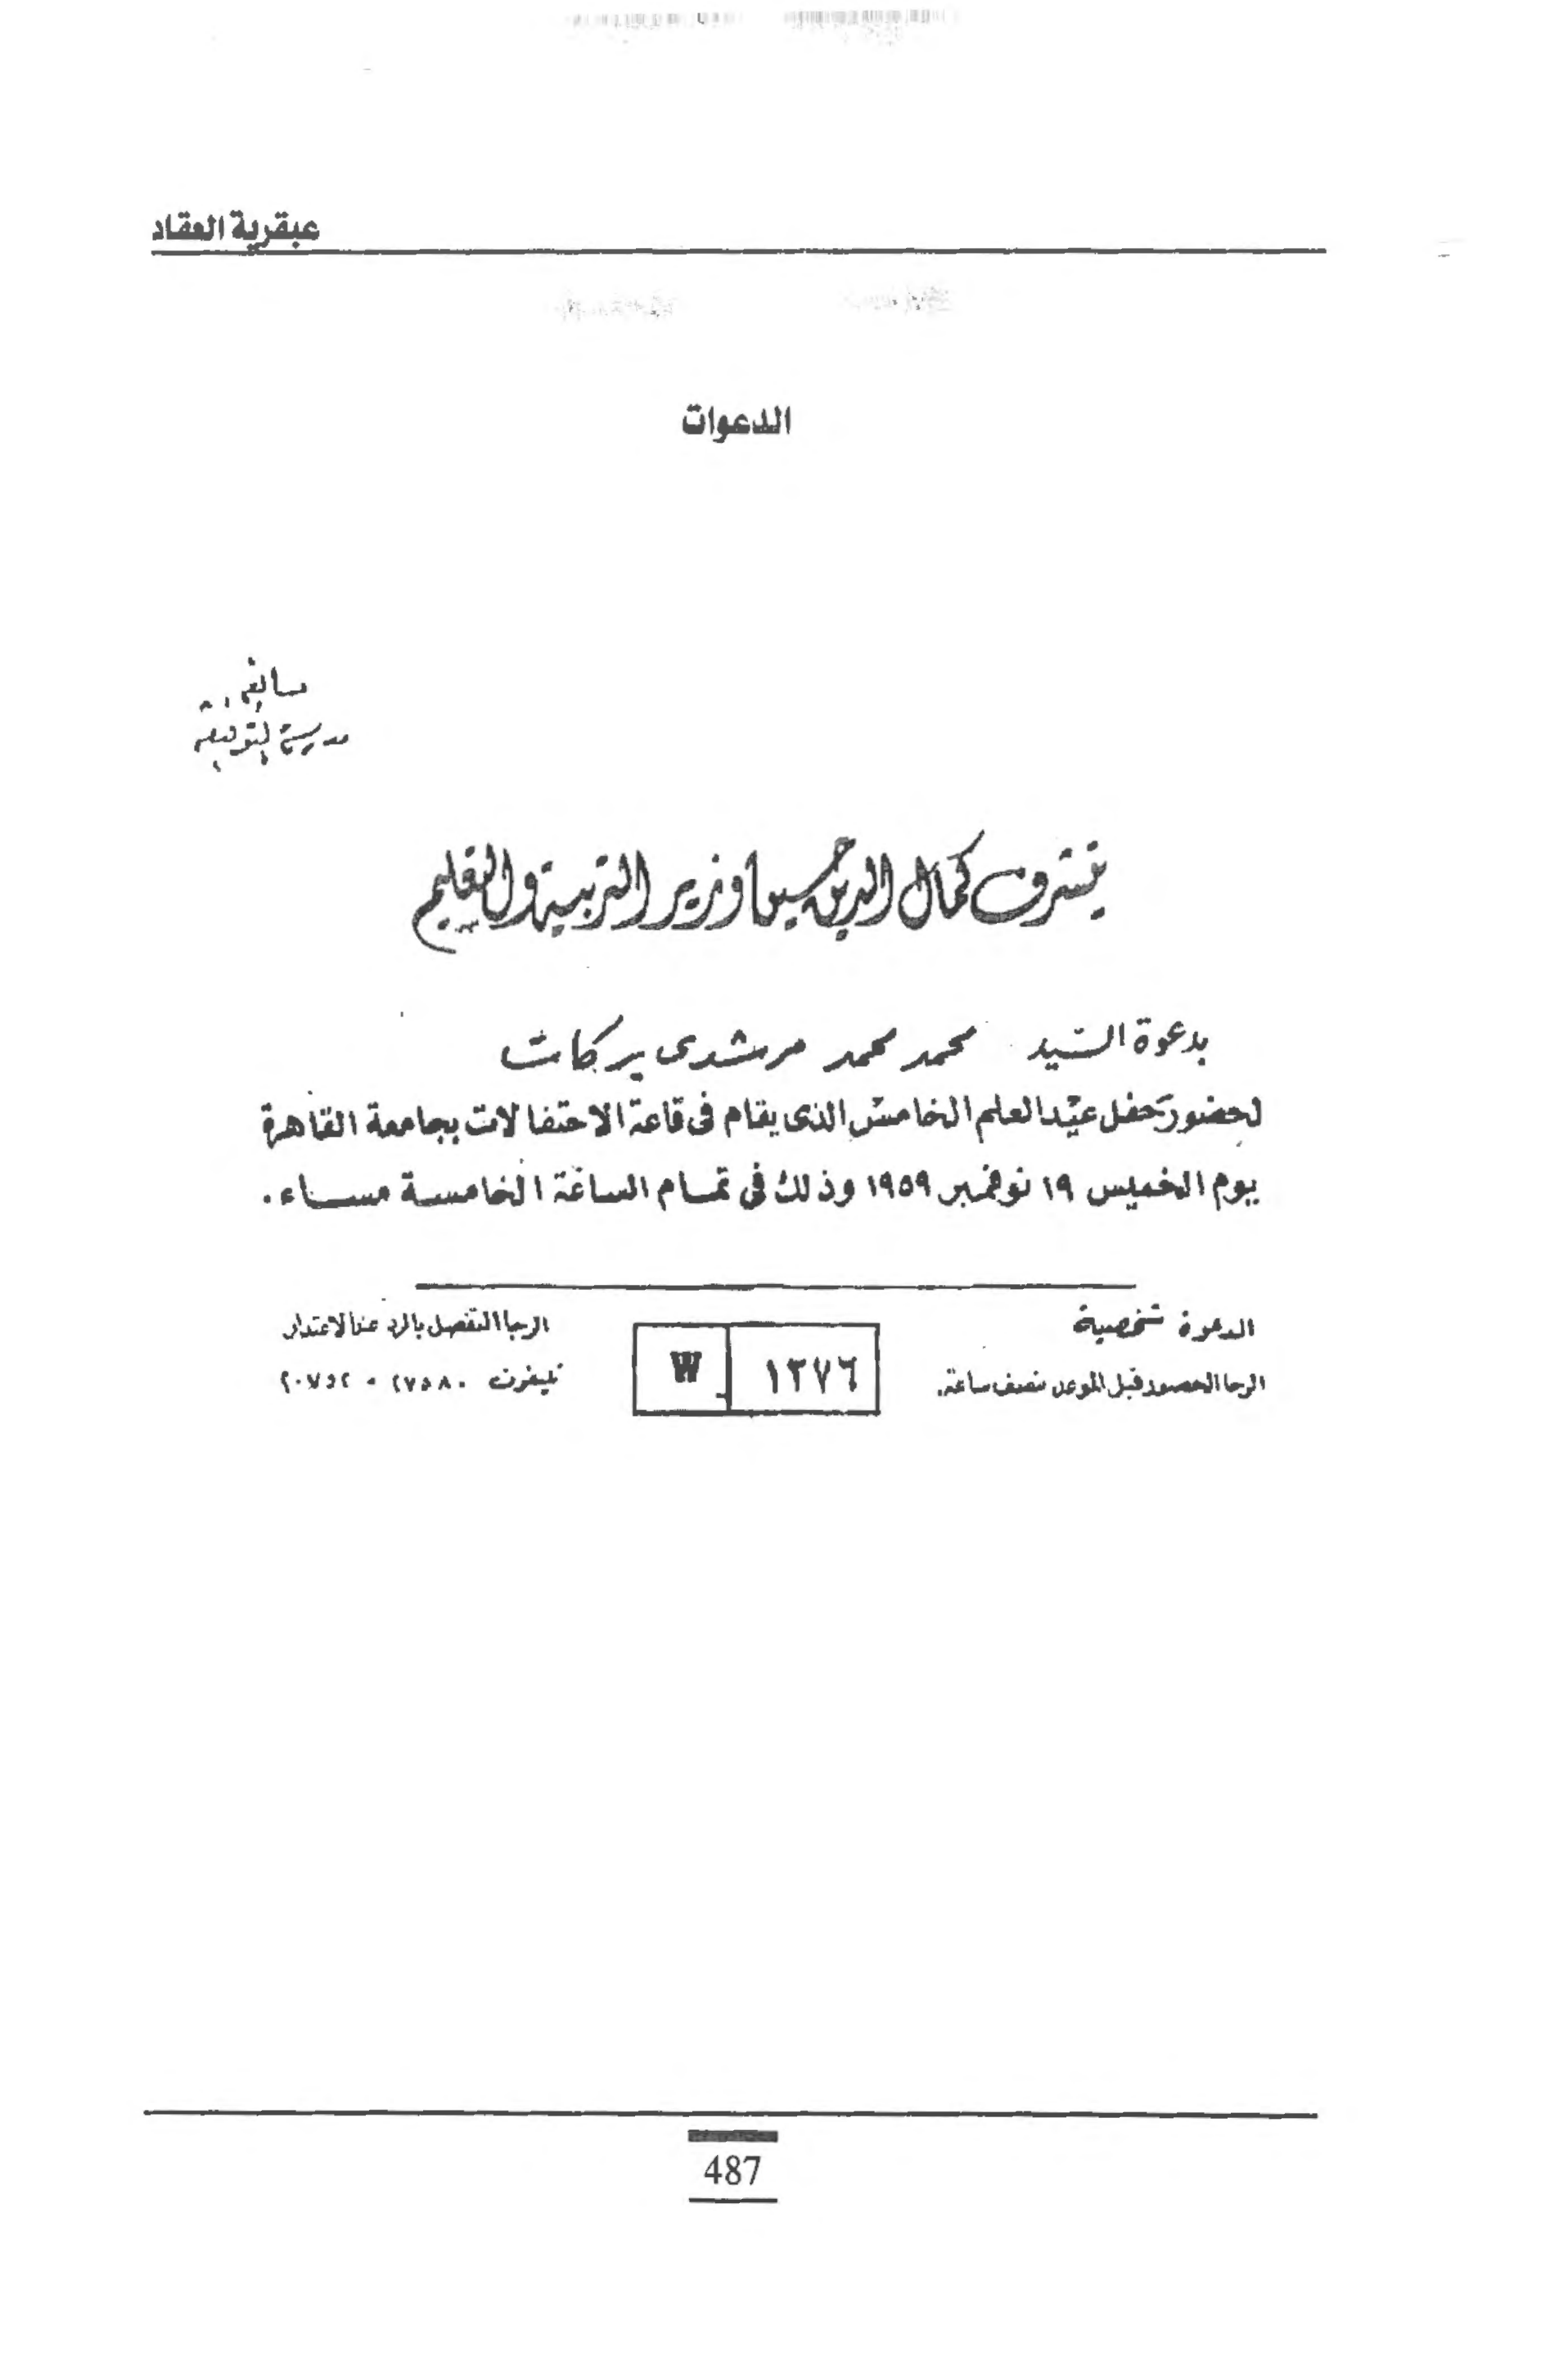 عبقرية العقاد
الدعوات
مدرسة التوفيقية
يتشرف كمال الدين حسين وزير التربية والتعليم
بدعوة السيد محمد محمد مرشدى بركات
لحضور حفل عيد العلم الخامس الذى يقام فى قاعة الاحتفالات بجامعة القاهرة
يوم الخميس ١٩ نوفمبر ١٩٥٩ وذلك فى تمام الساعة الخامسة مساء .
الدعوة شخصية
الرجا الحضور قبل الموعد بنصف ساعة.
١٣٧٦ W
الرجا التفضل بالرد عند الاعتذار
تليفون ٢٧٥٨٠ - ٢٠٧٥٢
487